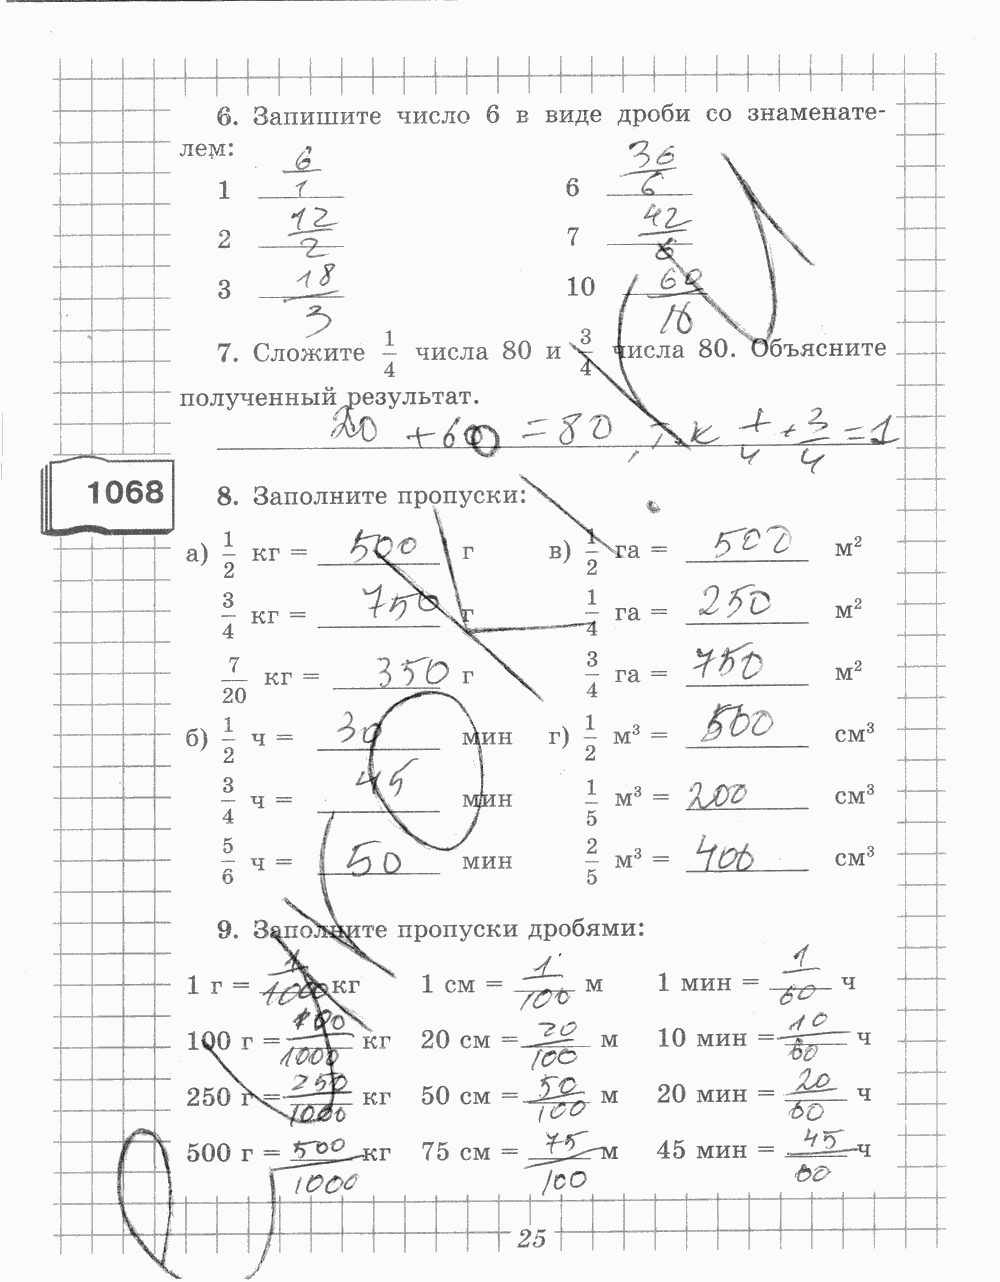 6. Запишите число 6 в виде дроби со знаменате-
лем:
1 6/1 6 36/6
2 12/2 7 42/6
3 18/3 10 60/10
7. Сложите 1/4 числа 80 и 3/4 числа 80. Объясните
полученный результат.
20 + 60 = 80, т.к 1/4 + 3/4 = 1
1068
8. Заполните пропуски:
а) 1/2 кг = 500 г в) 1/2 га = 500 м²
3/4 кг = 750 г 1/4 га = 250 м²
7/20 кг = 350 г 3/4 га = 750 м²
б) 1/2 ч = 30 мин г) 1/2 м³ = 500 см³
3/4 ч = 45 мин 1/5 м³ = 200 см³
5/6 ч = 50 мин 2/5 м³ = 400 см³
9. Заполните пропуски дробями:
1 г = 1/1000 кг 1 см = 1/100 м 1 мин = 1/60 ч
100 г = 100/1000 кг 20 см = 20/100 м 10 мин = 10/60 ч
250 г = 250/1000 кг 50 см = 50/100 м 20 мин = 20/60 ч
500 г = 500/1000 кг 75 см = 75/100 м 45 мин = 45/60 ч
25